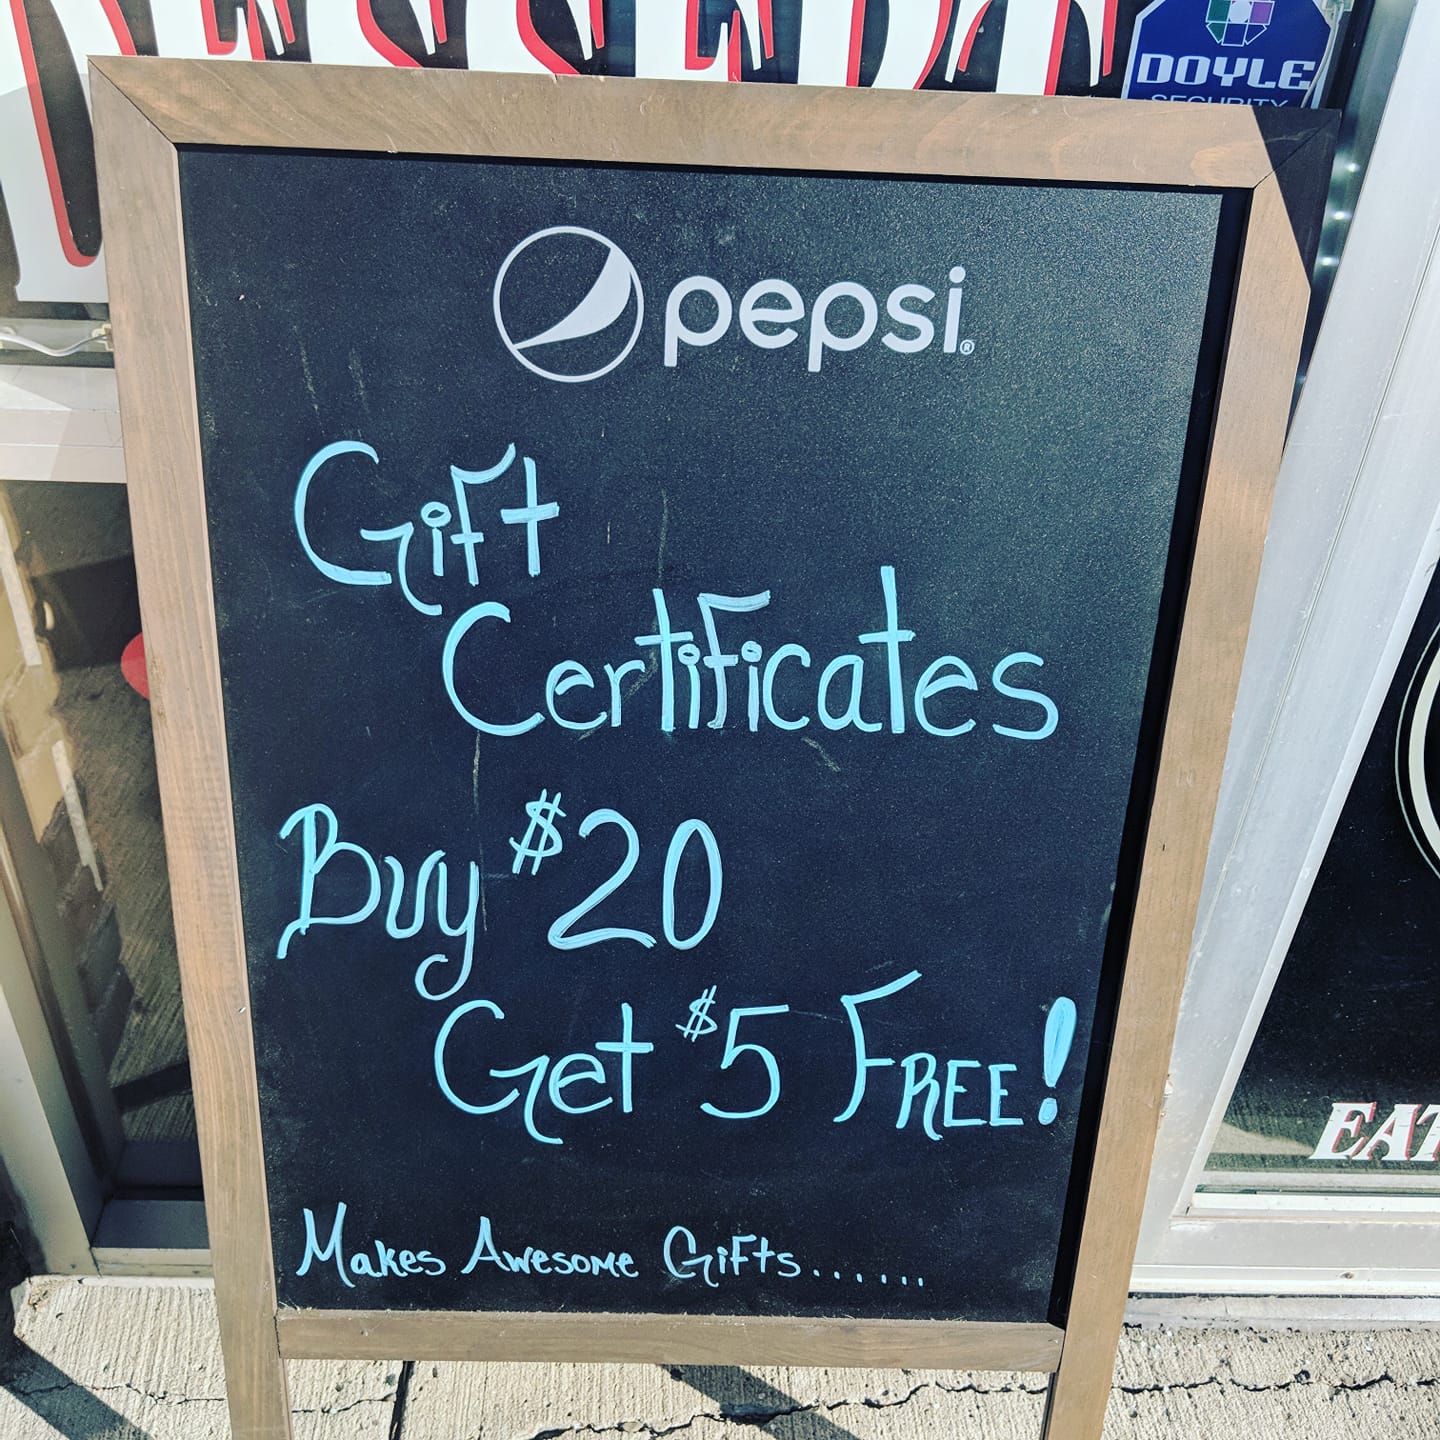 DESSERT
DOYLE
SECURITY
pepsi®
Gift
Certificates
Buy $20
Get $5 FREE!
Makes Awesome Gifts......
EAT